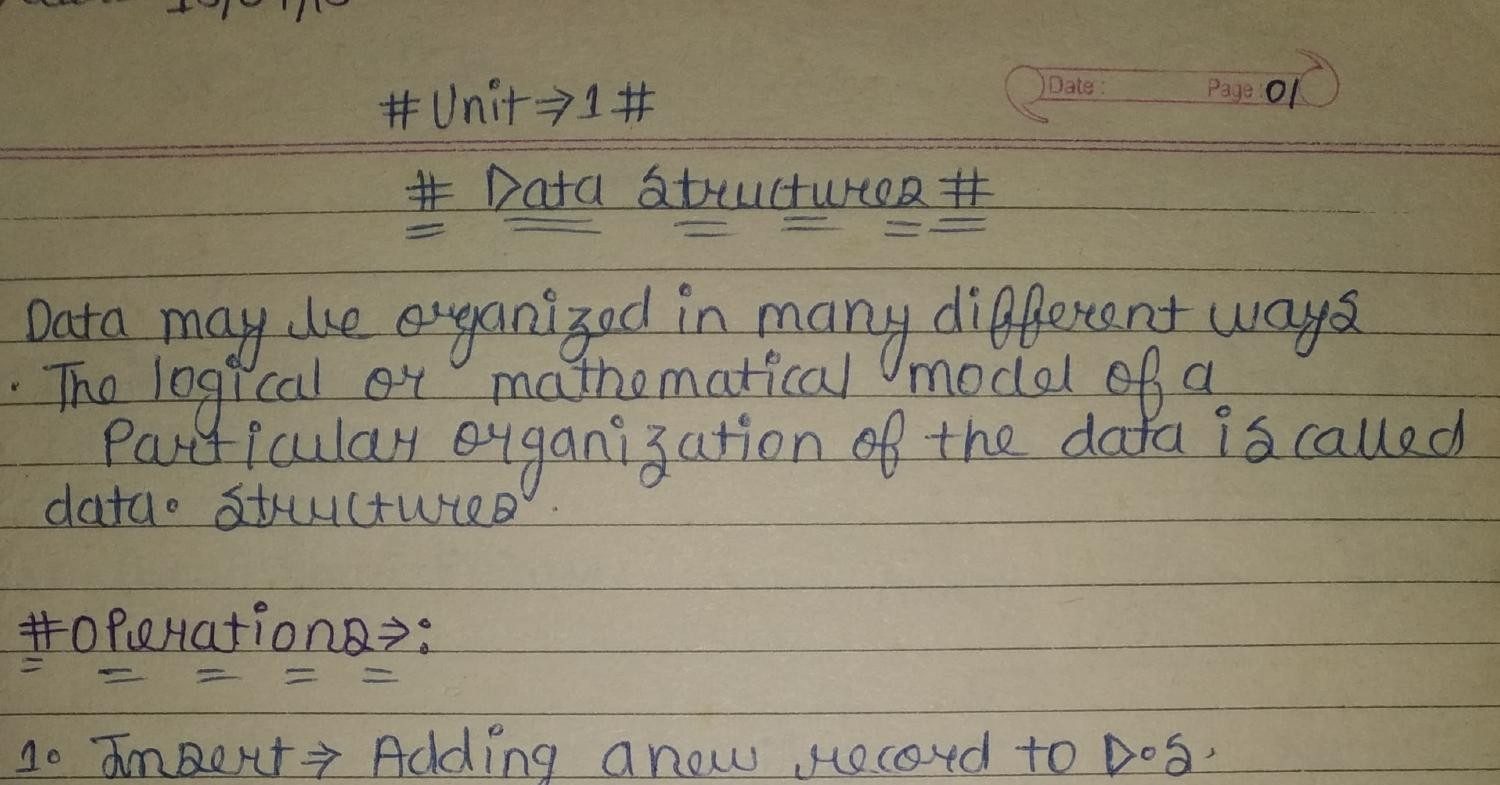 # Unit ⇒ 1 #
Date : Page : 01
# Data Structures #
Data may be organized in many different ways
. The logical or mathematical model of a
Particular organization of the data is called
data. Structures.
# Operations ⇒:
1. Insert ⇒ Adding a new record to D.S.